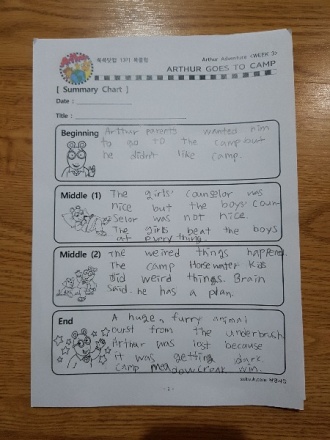 Arthur Adventure (WEEK 2)
ARTHUR GOES TO CAMP
[ Summary Chart ]
Date :
Title :
Beginning
Arthur parents wanted him
to go to the camp but
he didn't like camp.
Middle (1)
The girls' counselor was
nice but the boys coun-
selor was not nice.
The girls beat the boys
at everything.
Middle (2)
The weired things happened.
The camp Horsewater kids
did weird things. Brain
said he has a plan.
End
A huge, furry animal
burst from the underbrush
Arthur was lost because
it was getting dark.
camp Meadowcroak win.
- 1 -